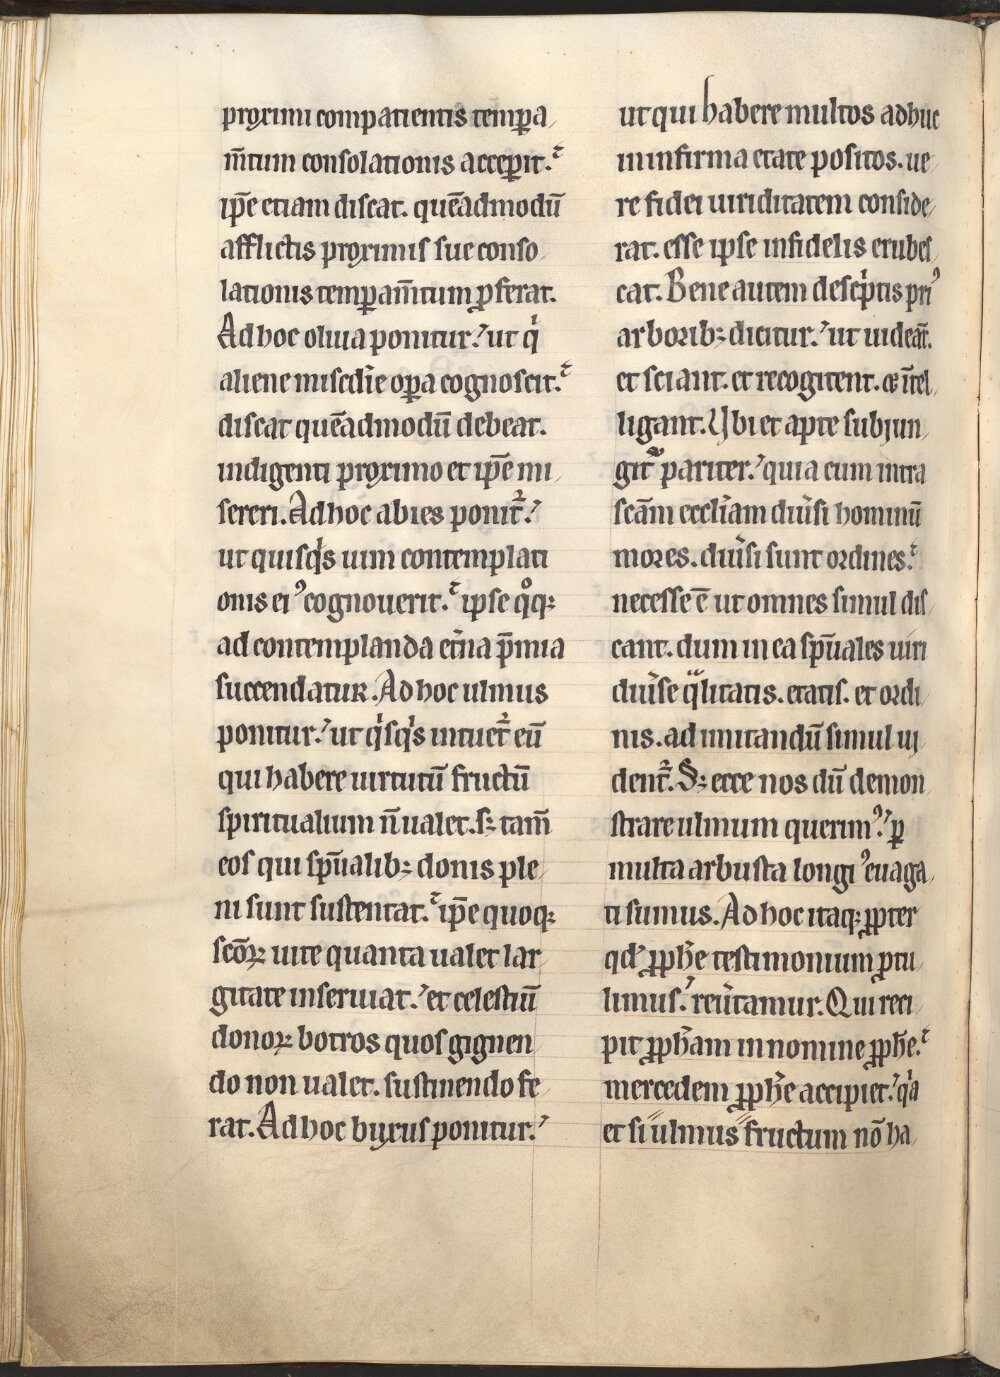 proximi compatientis temp̲a
m̅tum consolationis accep̲it.
ip̅e etiam discat. que̅admodu̅
afflictis proximis sue conso
lationis temp̲am̅tum p̲ferat.
Ad hoc oliua ponitur. ut qͥ
aliene misc̅die op̲a cognoscit.
discat que̅admodu̅ debeat.
indigenti proximo et ip̅e mi
sereri. Ad hoc abies ponit᷑.
ut quisqͥs uim contemplati
onis eiꝰ cognouerit. ipse qͦqꝫ
ad contemplanda et̅na p̅mia
succendatur. Ad hoc ulmus
ponitur. ut qͥsqͥs intuet᷑ eu̅
qui habere uirtutu̅ fructu̅
spiritualium n̅ ualet. sꝫ tam̅
eos qui sp̅ualibꝫ donis ple
ni sunt sustentat. ip̅e quoqꝫ
sco̅ꝝ uite quanta ualet lar
gitate inseruiat. et celestiu̅
donoꝝ botros quos gignen
do non ualet. sustinendo fe
rat. Ad hoc buxus ponitur.
ut qui habere multos adhuc
in infirma etate positos. ue
re fidei uiriditatem conside
rat. esse ipse infidelis erubes
cat. Bene autem descͥptis priꝰ
arboribꝫ dicitur. ut uidea̅t.
et sciant. et recogitent. et i̅tel
ligant. Ubi et apte subjun
git᷑ pariter. quia cum intra
sc̅am eccl̅iam diu̅si hominu̅
mores. diu̅si sunt ordines.
necesse e̅ ut omnes simul dis
cant. dum in ea sp̅uales uiri
diu̅se qͣlitatis. etatis. et ordi
nis. ad imitandu̅ simul ui
dent᷑. Sꝫ ecce nos du̅ demon
strare ulmum querimꝰ. p̲
multa arbusta longiꝰ euaga
ti sumus. Ad hoc itaqꝫ ꝓpter
qd̅ ꝓph̅e testimonium ꝓtu
limus. reu̅tamur. Qui reci
pit ꝓph̅am in nomine ꝓph̅e.
mercedem ꝓph̅e accipiet. qͥa
et si ulmus fructum no̅ ha